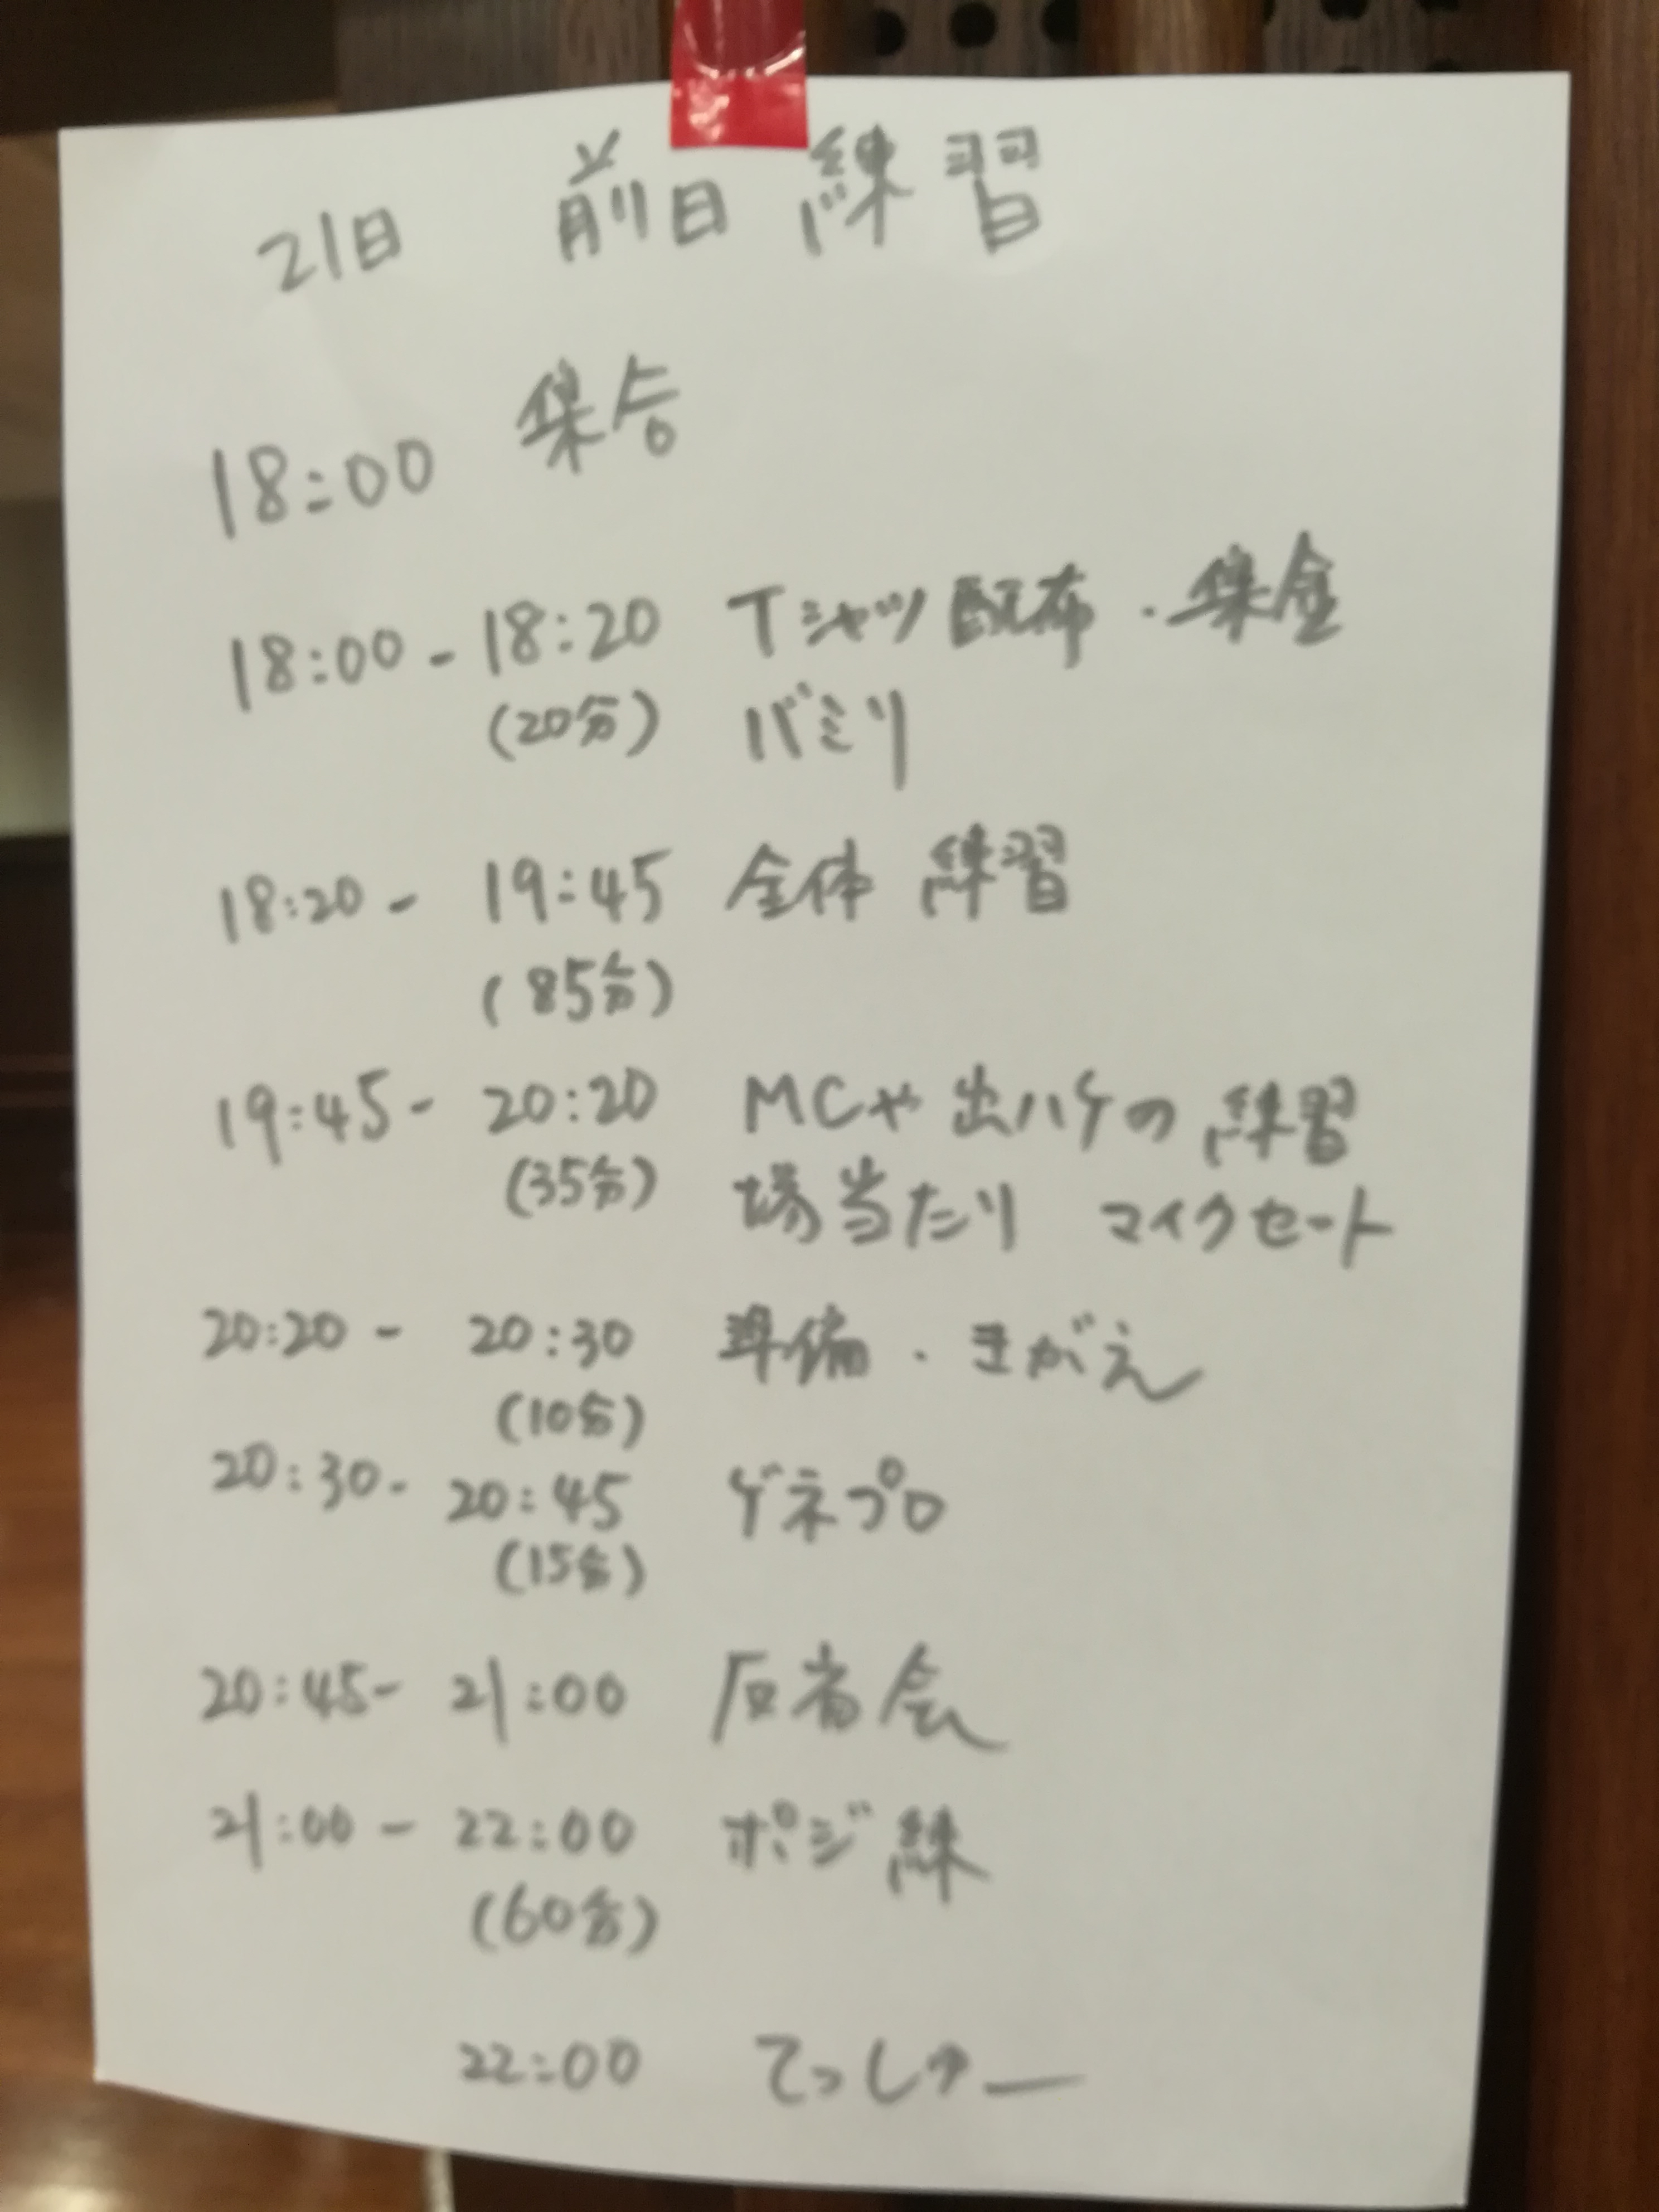 21日 前日練習
18:00 集合
18:00 - 18:20 Tシャツ配布・集金
(20分) バミリ
18:20 - 19:45 全体練習
(85分)
19:45 - 20:20 MCや出ハケの練習
(35分) 場当たり マイクセート
20:20 - 20:30 準備・きがえ
(10分)
20:30 - 20:45 ゲネプロ
(15分)
20:45 - 21:00 反省会
21:00 - 22:00 ポジ練
(60分)
22:00 てっしゅー